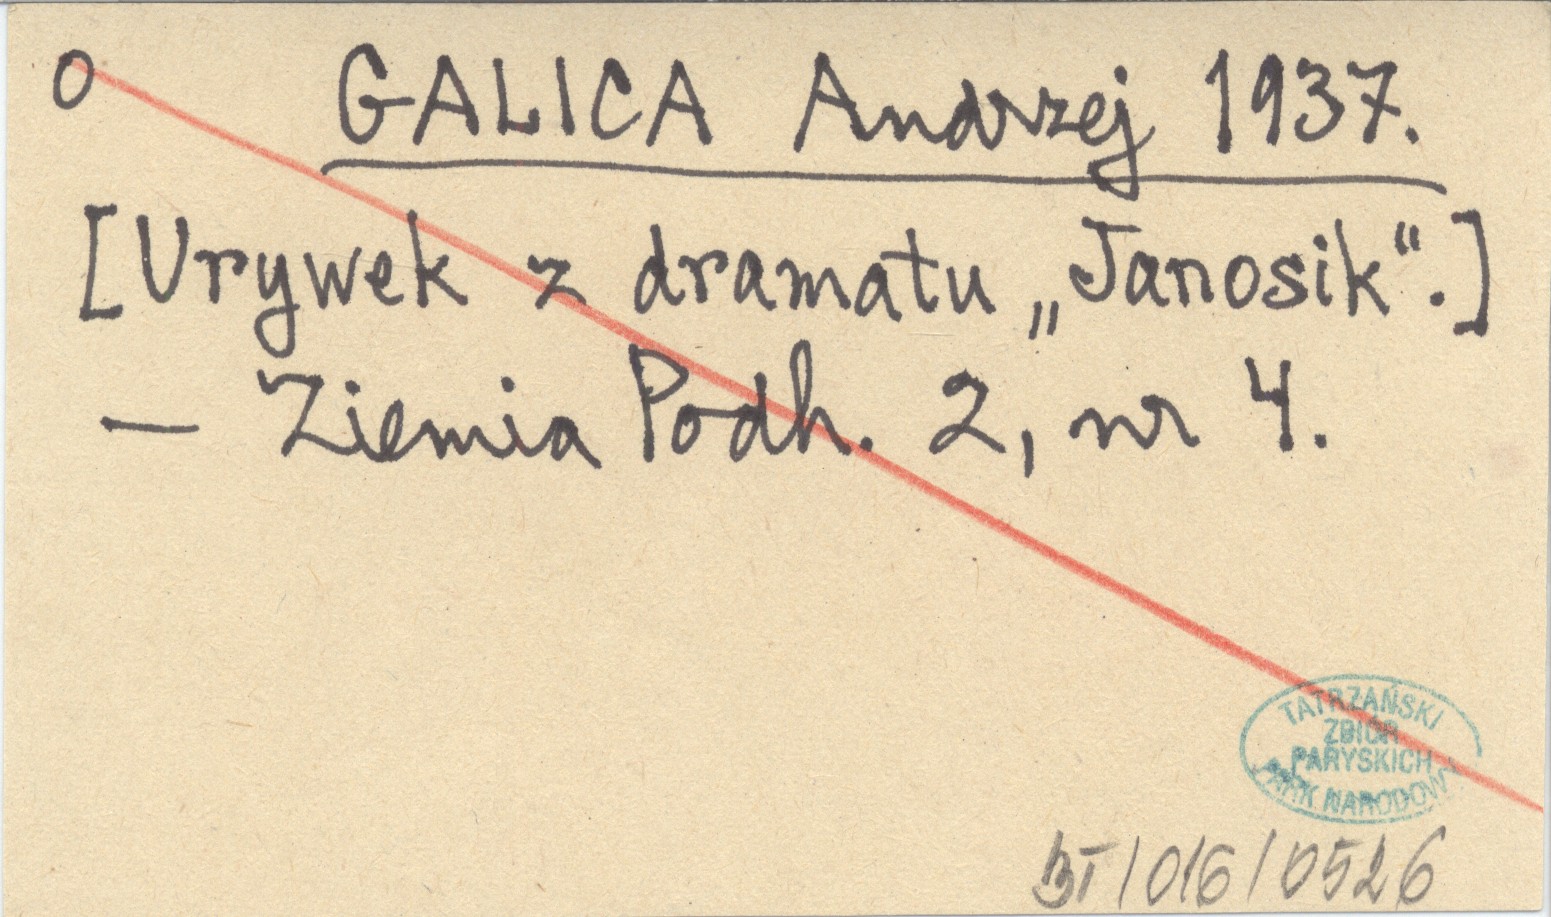 O GALICA Andrzej 1937.
[Urywek z dramatu „Janosik“.]
— Ziemia Podh. 2, nr 4.
TATRZAŃSKI
ZBIÓR
PARYSKICH
PARK NARODOWY
BT/016/0526